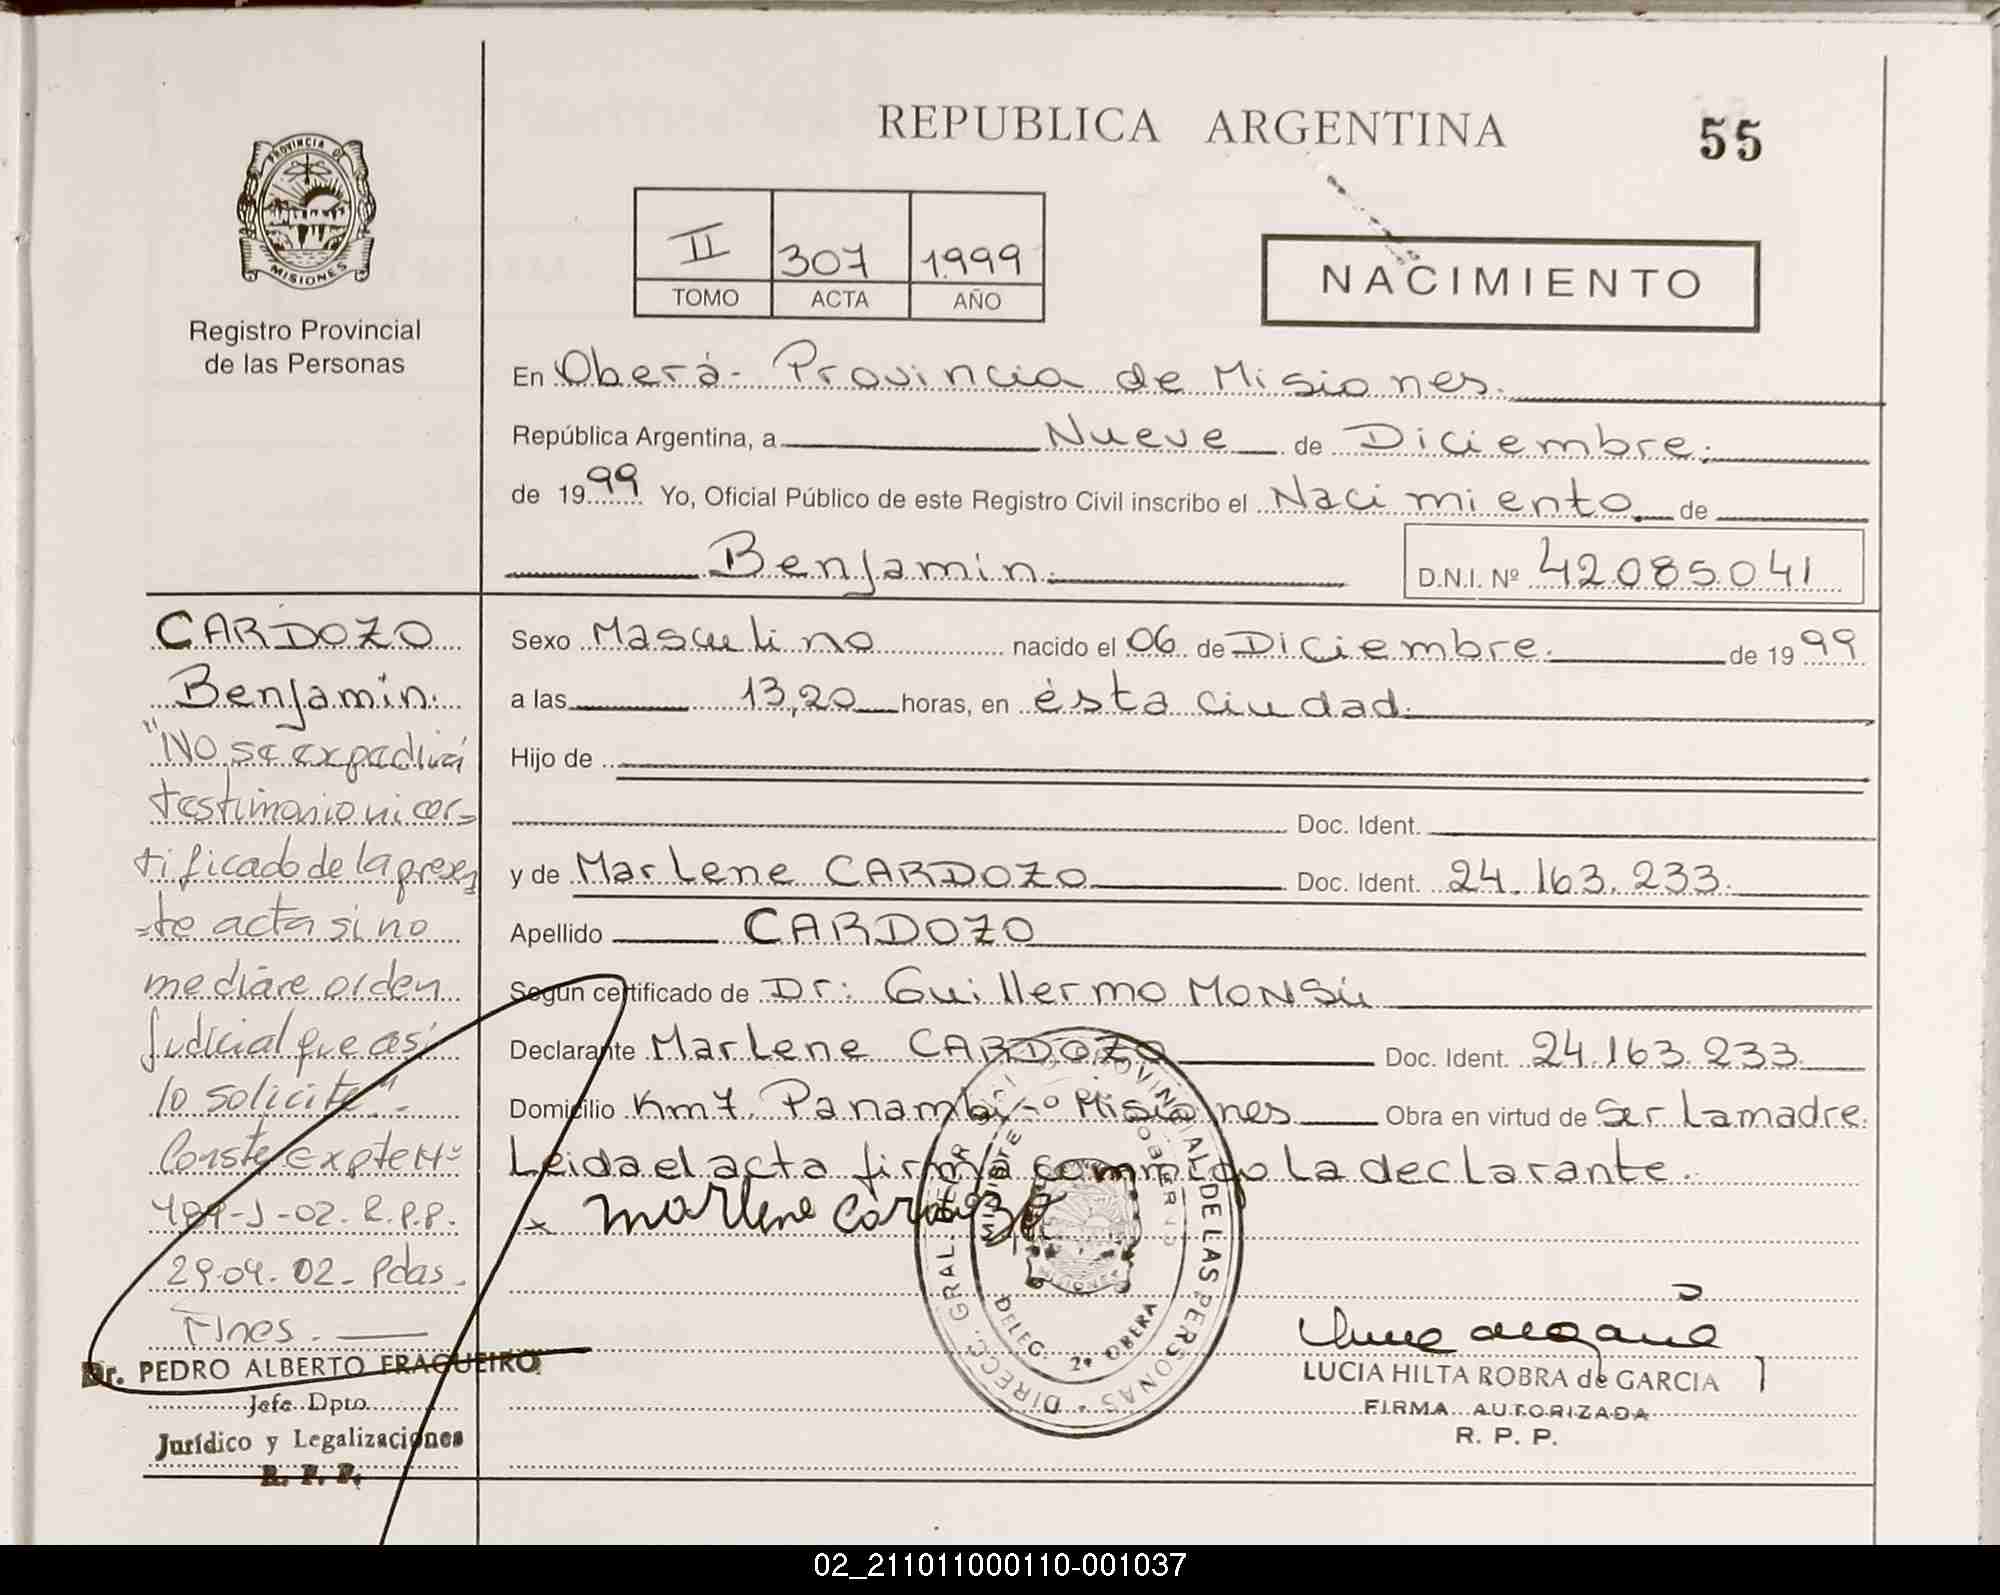 REPUBLICA ARGENTINA
55
PROVINCIA DE
MISIONES
Registro Provincial
de las Personas
II 307 1999
TOMO ACTA AÑO
NACIMIENTO
En Oberá - Provincia de Misiones.
República Argentina, a Nueve de Diciembre.
de 1999 Yo, Oficial Público de este Registro Civil inscribo el Nacimiento de
Benjamin. D.N.I. Nº 42085041
Sexo Masculino nacido el 06 de Diciembre. de 1999
a las 13,20 horas, en ésta ciudad.
Hijo de
Doc. Ident.
y de Marlene CARDOZO Doc. Ident. 24.163.233.
Apellido CARDOZO
Según certificado de Dr: Guillermo MONSÚ
Declarante Marlene CARDOZO Doc. Ident. 24.163.233.
Domicilio Km 7. Panambí - Misiones Obra en virtud de Ser La madre.
Leida el acta firma conmigo La declarante.
x Marlene Cardozo
CARDOZO
Benjamin.
"No se expedirá
testimonio ni cer=
tificado de la presen
=te acta si no
mediare orden
Judicial que así
lo solicite".-
Conste Expte Nº
489-J-02. R.P.P.
29.04.02 - Pdas.
Mnes.
Dr. PEDRO ALBERTO FRAQUEIRO
Jefe Dpto.
Jurídico y Legalizaciones
R. P. P.
DIRECC. GRAL. DEL PROVINCIAL DE LAS PERSONAS
GOBIERNO
DELEG. 2ª OBERA
MISIONES
LUCIA HILTA ROBRA de GARCIA
FIRMA AUTORIZADA
R. P. P.
02_211011000110-001037